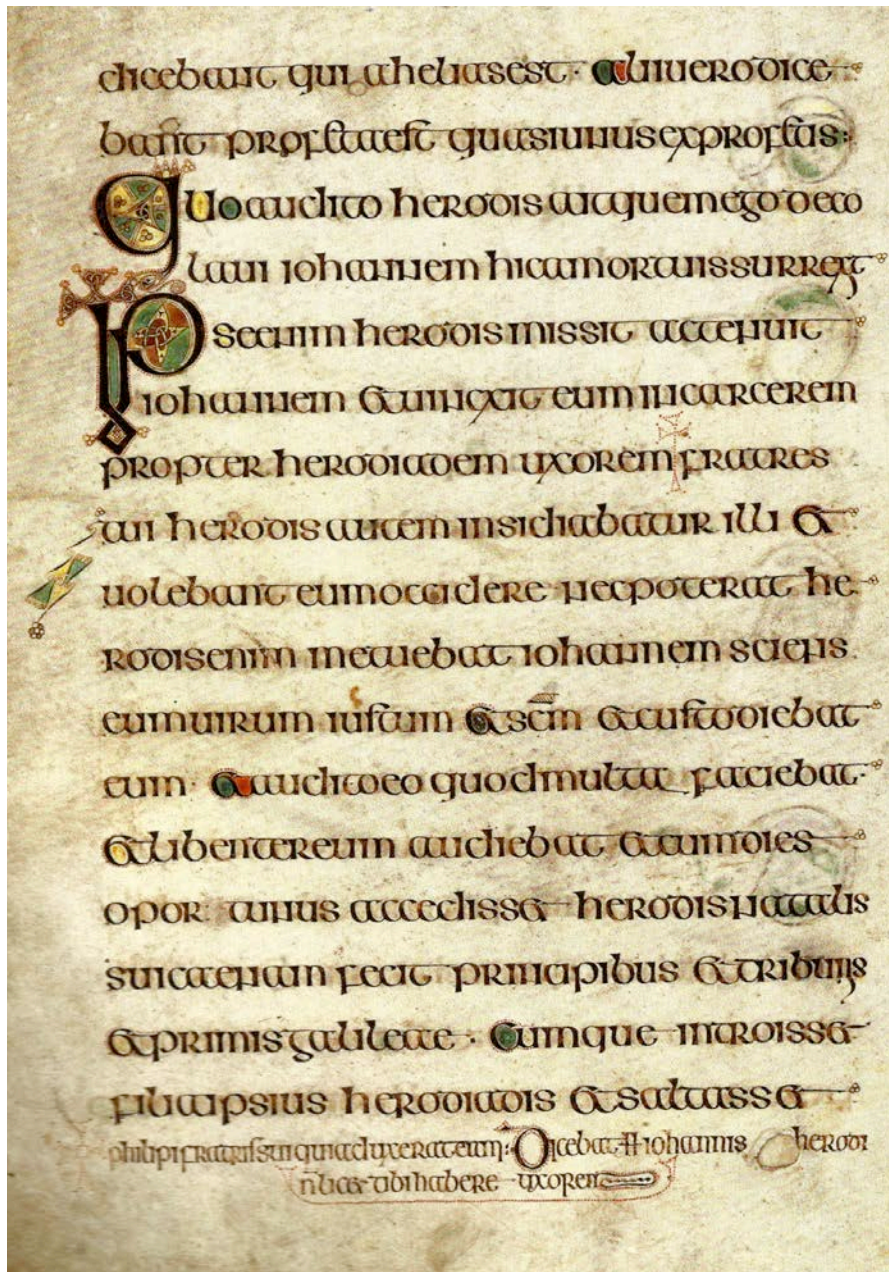 dicebant quia helias est · alii uero dice
bant profeta est quasi unus ex profetis :
Quo audito herodis ait quem ego deco
laui iohannem hic a mortuis surrexit
Ipse enim herodis missit ac tenuit
iohannem et uinxit eum in carcerem
propter herodiadem uxorem fratres
sui herodis autem insidiabatur illi et
uolebant eum occidere nec poterat he
rodis enim metuebat iohannem sciens
eum uirum iustum et scm et custodiebat
eum · et audito eo quod multa faciebat ·
et libenter eum audiebat et cum dies
opor tunus accedisset herodis natalis
sui catenam fecit principibus et tribunis
et primis galileae · Cumque introisset
filia ipsius herodiadis et saltasset
philipi fratris sui quia duxerat eam : Dicebat iohannis herodi
tibi habere uxorem